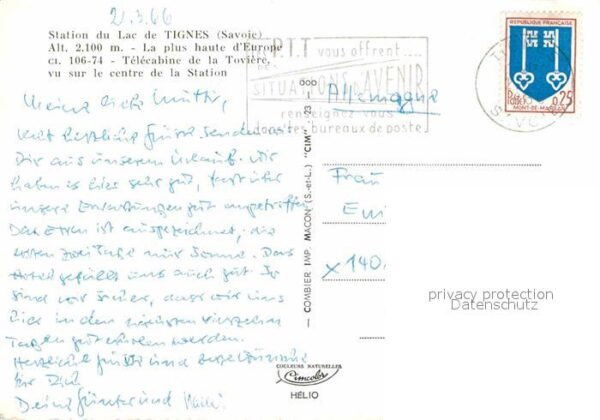 21.3.66
Station du Lac de TIGNES (Savoie)
Alt. 2.100 m. - La plus haute d'Europe
CI. 106-74 - Télécabine de la Tovière,
vu sur le centre de la Station
P.T.T vous offrent....
DES
SITUATIONS D'AVENIR
renseignez vous
dans les bureaux de poste
REPUBLIQUE FRANÇAISE
Postes 0,25
MONT-DE-MARSAN
Allemagne
Meine liebe Mutti,
herzliche Grüße senden wir
Dir aus unserem Urlaub. Wir
haben es hier sehr gut, fast über
unsere Erwartungen gut angetroffen
Das Essen ist ausgezeichnet, die
ersten zwei Tage nur Sonne. Das
Hotel gefällt uns auch gut. So
sind wir sicher, dass wir uns
hier in den nächsten vierzehn
Tagen gut erholen werden.
Herzliche Grüße und
für Dich
Deine Günter und
Frau
Emi
x 140.
COMBIER IMP. MACON (S.-et-L.) "CIM"
COULEURS NATURELLES
Cimcolor
HÉLIO
privacy protection
Datenschutz